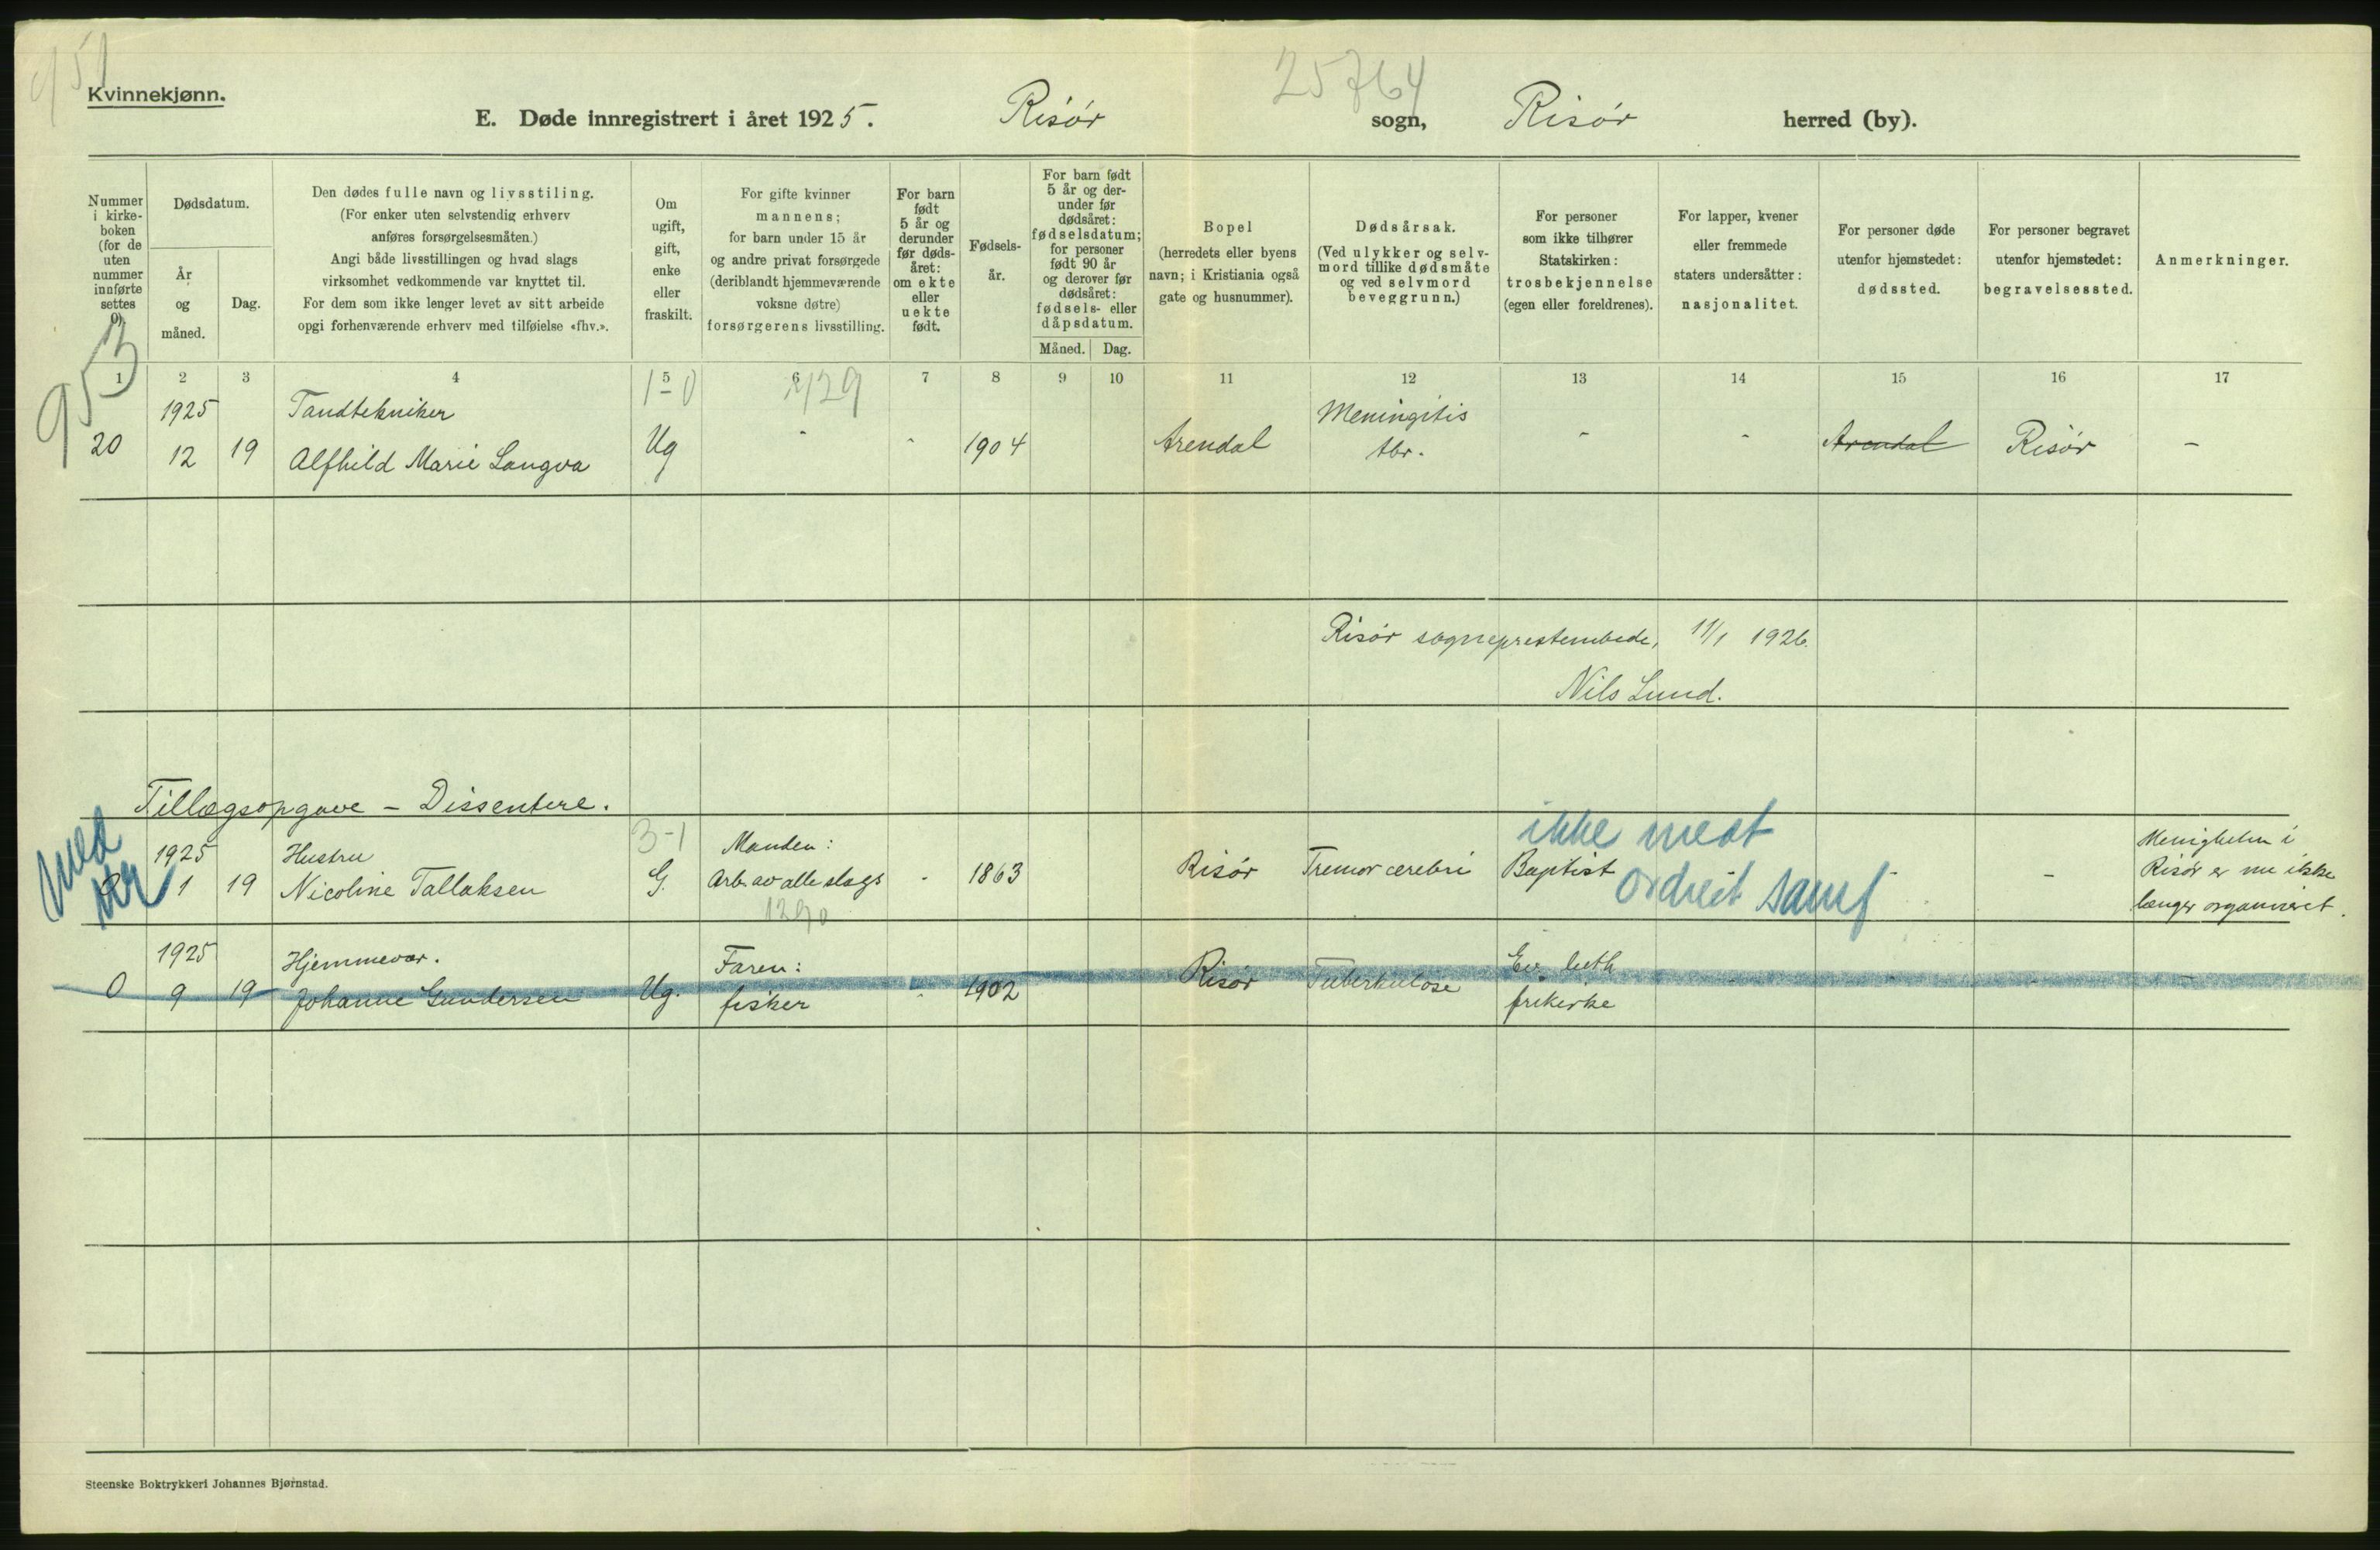 951
Kvinnekjønn.
25764
E. Døde innregistrert i året 1925. Risør sogn, Risør herred (by).
Nummer
i kirke-
boken
(for de
uten
nummer
innførte
settes
0).
Dødsdatum.
År
og
måned.
Dag.
Den dødes fulle navn og livsstiling.
(For enker uten selvstendig erhverv
anføres forsørgelsesmåten.)
Angi både livsstillingen og hvad slags
virksomhet vedkommende var knyttet til.
For dem som ikke lenger levet av sitt arbeide
opgi forhenværende erhverv med tilføielse «fhv.».
Om
ugift,
gift,
enke
eller
fraskilt.
For gifte kvinner
mannens;
for barn under 15 år
og andre privat forsørgede
(deriblandt hjemmeværende
voksne døtre)
forsørgerens livsstilling.
For barn
født
5 år og
derunder
før døds-
året:
om ekte
eller
uekte
født.
Fødsels-
år.
For barn født
5 år og der-
under før
dødsåret:
fødselsdatum;
for personer
født 90 år
og derover før
dødsåret:
fødsels- eller
dåpsdatum.
Måned. Dag.
Bopel
(herredets eller byens
navn; i Kristiania også
gate og husnummer).
Dødsårsak.
(Ved ulykker og selv-
mord tillike dødsmåte
og ved selvmord
beveggrunn.)
For personer
som ikke tilhører
Statskirken:
trosbekjennelse
(egen eller foreldrenes).
For lapper, kvener
eller fremmede
staters undersåtter:
nasjonalitet.
For personer døde
utenfor hjemstedet:
dødssted.
For personer begravet
utenfor hjemstedet:
begravelsessted.
Anmerkninger.
1 2 3 4 5 6 7 8 9 10 11 12 13 14 15 16 17
953
1925 Tandtekniker 1-0 429 Meningitis
20 12 19 Alfhild Marie Langva Ug - - 1904 Arendal tbr. - - Arendal Risør -
Risør sogneprestembede, 11/1 1926.
Nils Lund.
Tillægsopgave - Dissentere.
med
1925 Hustru 3-1 Manden: ikke medt Menigheten i
0 1 19 Nicoline Tallaksen G. Arb. av alle slags - 1863 Risør Tremor cerebri Baptist ordnet samf - - Risør er nu ikke
1290 længer organiseret.
1925 Hjemmevær. Faren: Ev. luth
0 9 19 Johanne Gundersen Ug. fisker - 1902 Risør Tuberkulose frikirke - - - -
Steenske Boktrykkeri Johannes Bjørnstad.